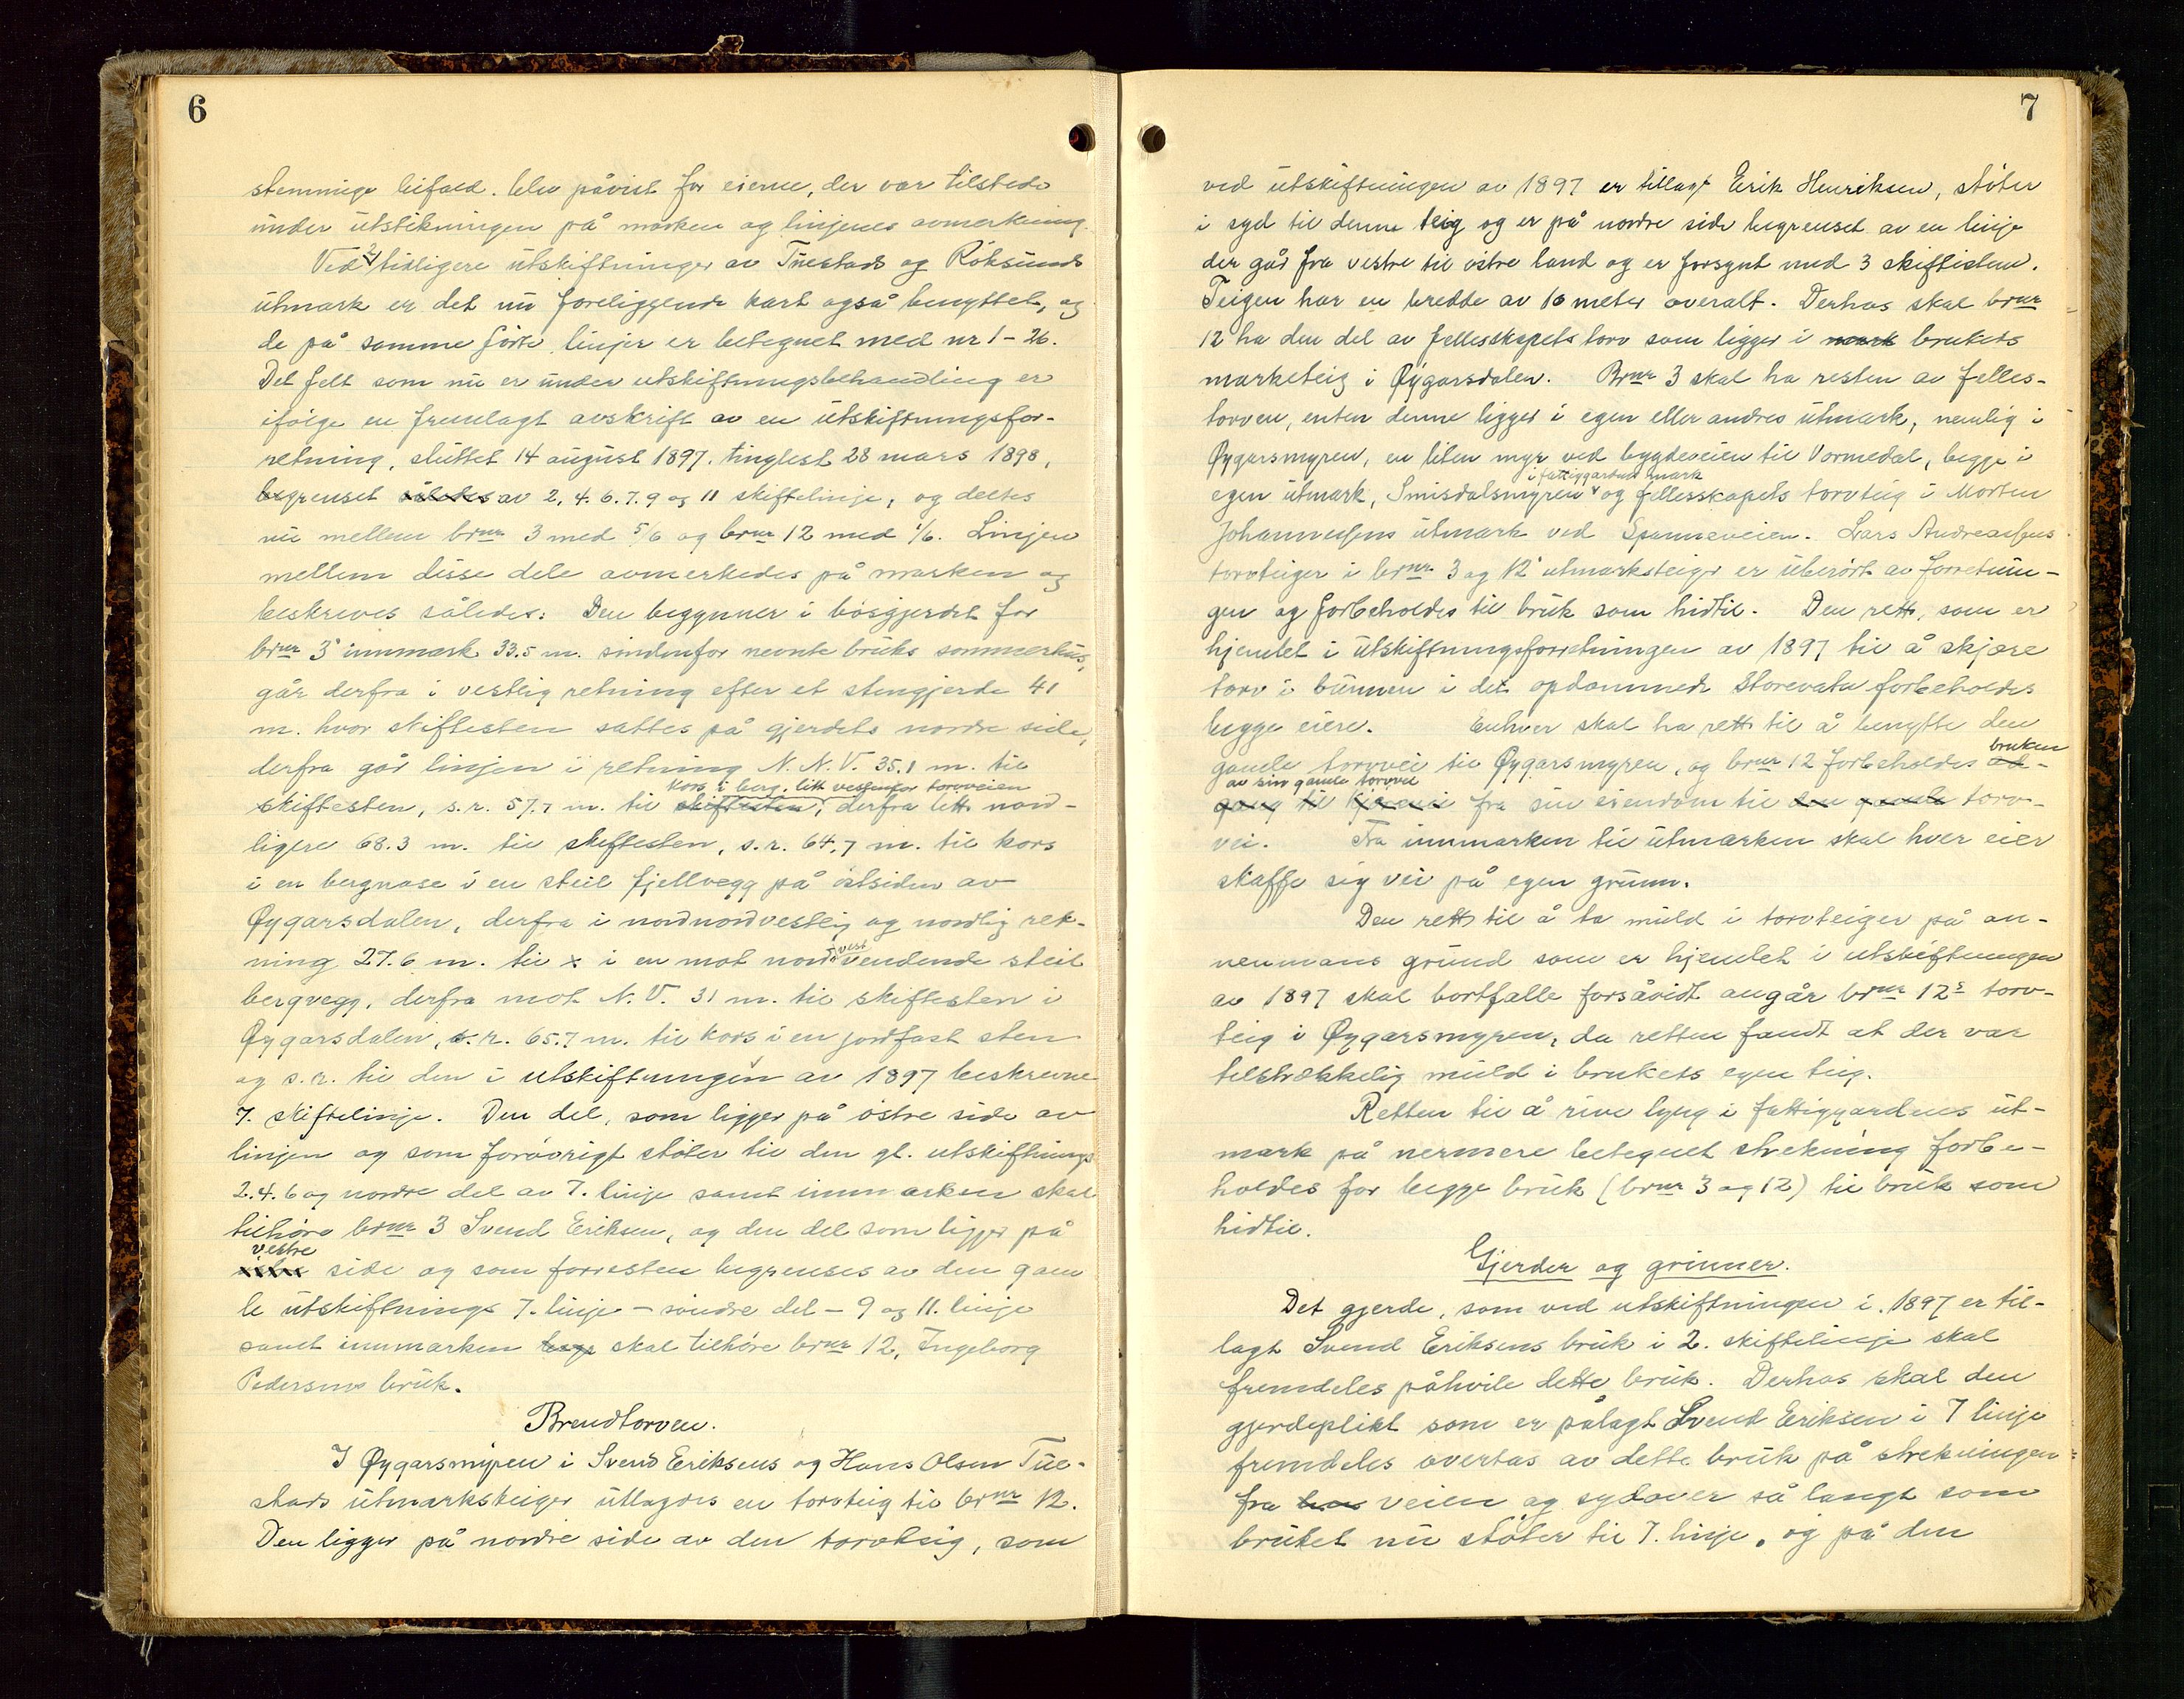 6
stemmige bifald. blev påvist for eierne, der var tilstede
under utstikningen på marken og linjenes avmerkning.
Ved 2 tidligere utskiftninger av Tuestads og Røksunds
utmark er det nu foreliggende kart også benyttet, og
de på samme førte linjer er betegnet med nr 1-26.
Det felt som nu er under utskiftningsbehandling er
ifølge en fremlagt avskrift av en utskiftningsfor-
retning, sluttet 14 august 1897. tinglest 28 mars 1898,
begrenset således av 2. 4. 6. 7. 9 og 11 skiftelinje, og deltes
nu mellem brnr 3 med 5/6 og brnr 12 med 1/6. Linjen
mellem disse dele avmerkedes på marken og
beskrives således: Den begynner i bøsgjerdet for
brnr 3s innmark 33.5 m. søndenfor nevnte bruks sommerhus,
går derfra i vestlig retning efter et stengjerde 41
m. hvor skiftesten sattes på gjerdets nordre side,
derfra går linjen i retning N. N. V. 35.1 m. til
kors i berg, litt vestenfor torvveien
skiftesten, s. r. 57.7 m. til skiftesten, derfra litt nord-
ligere 68.3 m. til skiftesten, s. r. 64.7 m. til kors
i en bergnase i en steil fjellvegg på østsiden av
Øygarsdalen, derfra i nordnordvestlig og nordlig ret-
vest
ning 27.6 m. til x i en mot nord vendende steil
bergvegg, derfra mot N. V. 31 m. til skiftesten i
Øygarsdalen, s. r. 65.7 m. til kors i en jordfast sten
og s. r. til den i utskiftningen av 1897 beskrevne
7. skiftelinje. Den del, som ligger på østre side av
linjen og som forøvrigt støter til den gl. utskiftnings
2. 4. 6 og nordre del av 7. linje samt innmarken skal
tilhøre brnr 3 Svend Eriksen, og den del som ligger på
vestre
østre side og som forresten begrenses av den gam
le utskiftnings 7. linje - søndre del - 9 og 11. linje
samt innmarken skal tilhøre brnr 12, Ingeborg
Pedersens bruk.
Brendtorven.
I Øygarsmyren i Svend Eriksens og Hans Olsen Tue-
stads utmarksteiger utlagdes en torvteig til brnr 12.
Den ligger på nordre side av den torvteig, som
7
ved utskiftningen av 1897 er tillagt Erik Henriksen, støter
i syd til denne teig og er på nordre side begrenset av en linje
der går fra vestre til østre land og er forsynt med 3 skiftesten.
Teigen har en bredde av 10 meter overalt. Derhos skal brnr
12 ha den del av fellesskapets torv som ligger i mark brukets
marketeig i Øygarsdalen. Brnr 3 skal ha resten av felles-
torven, enten denne ligger i egen eller andres utmark, nemlig i
Øygarsmyren, en liten myr ved bygdeveien til Vormedal, begge i
i fattiggardens mark
egen utmark, Smisdalsmyren og fellesskapets torvteig i Morten
Johannessens utmark ved Spanneveien. Lars Andreassens
torvteiger i brnr. 3 og 12s utmarksteiger er uberørt av forretnin-
gen og forbeholdes til bruk som hidtil. Den rett, som er
hjemlet i utskiftningsforretningen av 1897 til å skjære
torv i bunnen i det opdemmede Storevatn forbeholdes
begge eiere. Enhver skal ha rett til å benytte den
bruken
gamle torvvei til Øygarsmyren, og brnr 12 forbeholdes ad-
av sin gamle torvvei
gang til fra sin eiendom til den gamle torv-
vei. Fra innmarken til utmarken skal hver eier
skaffe sig vei på egen grunn.
Den rett til å ta muld i torvteiger på an-
nenmans grund som er hjemlet i utskiftningen
av 1897 skal bortfalle forsåvidt angår brnr 12s torv-
teig i Øygarsmyren, da retten fandt at der var
tilstrekkelig muld i brukets egen teig.
Retten til å rive lyng i fattiggardens ut-
mark på nermere betegnet strekning forbe-
holdes for begge bruk (brnr 3 og 12) til bruk som
hidtil.
Gjerder og grinner.
Det gjerde, som ved utskiftningen i. 1897 er til-
lagt Svend Eriksens bruk i 2. skiftelinje skal
fremdeles påhvile dette bruk. Derhos skal den
gjerdeplikt som er pålagt Svend Eriksen i 7 linje
fremdeles overtas av dette bruk på strekningen
fra veien og sydover så langt som
bruket nu støter til 7. linje, og på den